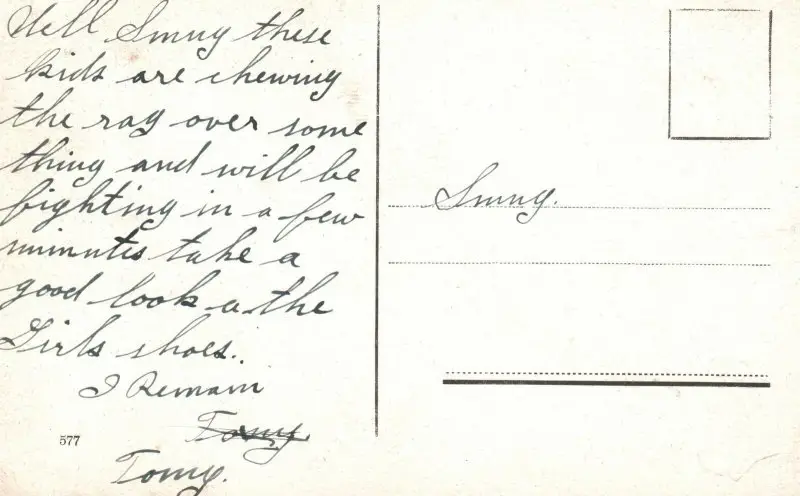 Well Smny these
kids are chewing
the rag over some
thing and will be
fighting in a few
minutes take a
good look a the
Girls shoes.
I Remain
Tomy
Tomy.
577
Smny.